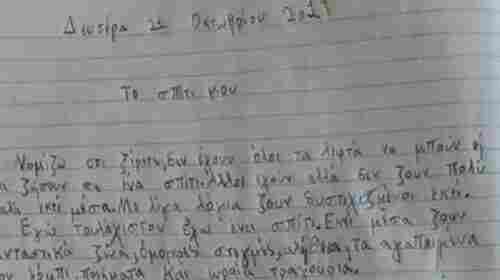 Δευτέρα 21 Οκτωβρίου 202
Το σπίτι μου
Νομίζω οτι ξέρετε, δεν έχουν όλοι τα λεφτά να μπούν ή
να ζήσουν σε ένα σπίτι. Άλλοι έχουν αλλά δεν ζουν πολύ
καλά εκεί μέσα. Με λίγα λόγια ζουν δυστυχισμένοι εκεί.
Εγώ τουλάχιστον έχω ένα σπίτι. Εκεί μέσα ζουν
φανταστικά ζώα, όμορφες στιγμές, αλήθεια, τα αγαπημένα
μου ποιήματα και ωραία τραγούδια.